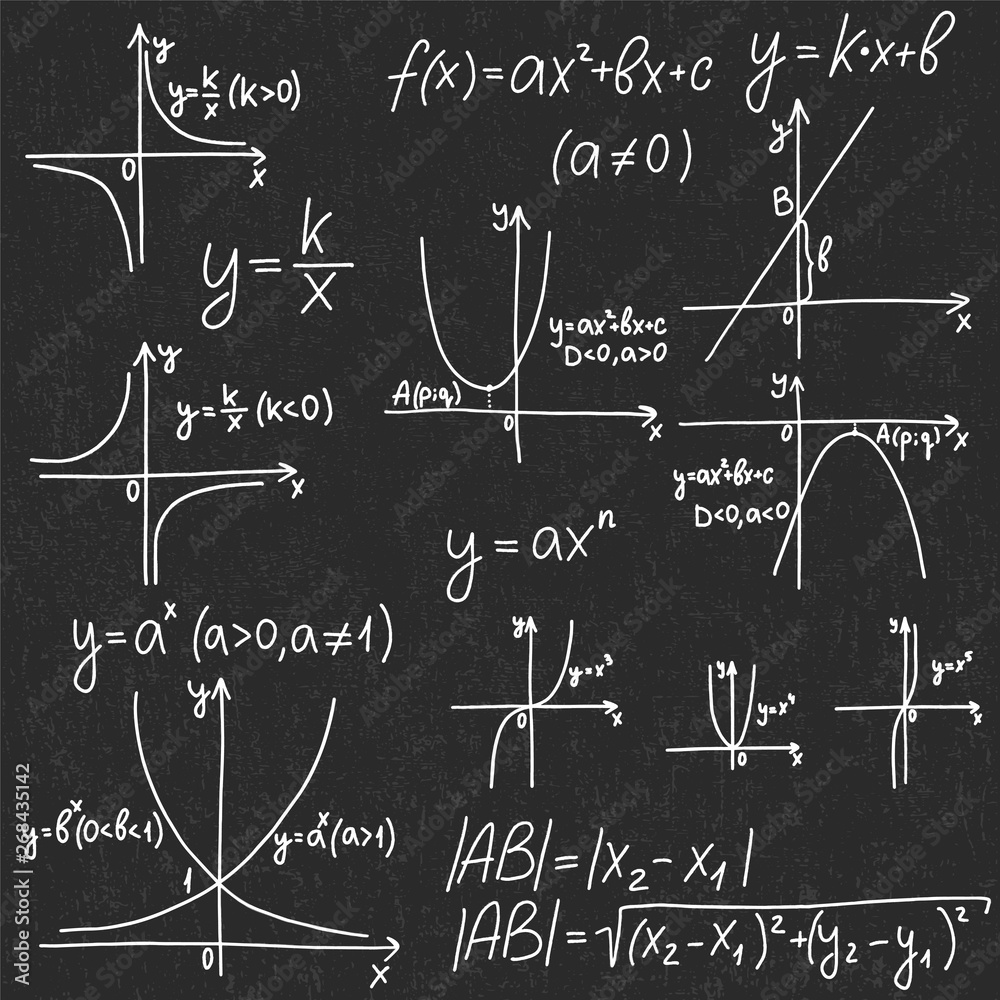 y
y=k/x (k>0)
0
x
y = k/x
f(x)=ax²+bx+c
(a≠0)
y = k·x+b
y
B
b
0
x
y
y=ax²+bx+c
D<0,a>0
A(p;q)
0
x
y
y=k/x (k<0)
0
x
y
0
A(p;q)
x
y=ax²+bx+c
D<0,a<0
y = axⁿ
y=aˣ (a>0,a≠1)
y
y=bˣ(0<b<1)
y=aˣ(a>1)
1
0
x
y
y=x³
0
x
y
y=x⁴
0
x
y
y=x⁵
0
x
|AB|=|x₂-x₁|
|AB|=√(x₂-x₁)²+(y₂-y₁)²
Adobe Stock | #268435142